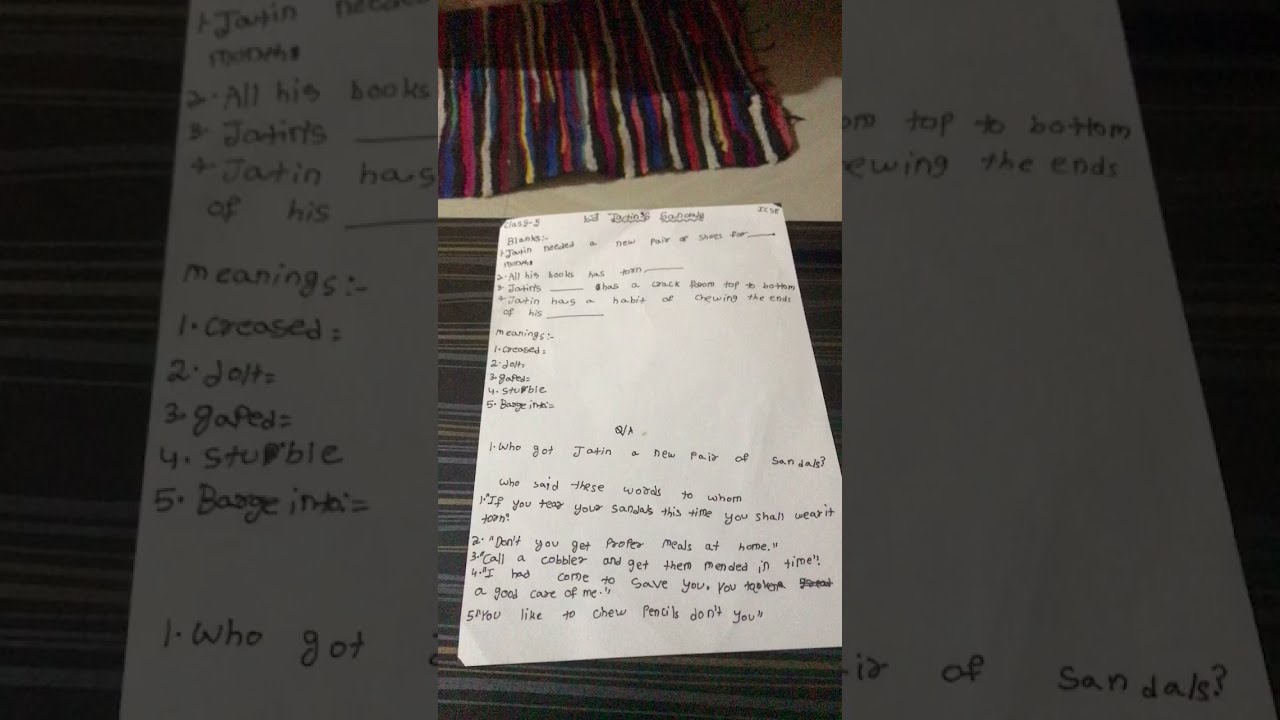 Class-5 Jatin's Sandals ICSE
Blanks:-
1. Jatin needed a new pair of shoes for ____
months
2. All his books has torn ____
3. Jatin's ____ has a crack from top to bottom
4. Jatin has a habit of chewing the ends
of his ____
meanings:-
1. Creased=
2. dolt=
3. gaped=
4. Stumble
5. Barge into:=
Q/A
1. Who got Jatin a new pair of Sandals?
who said these words to whom
1. "If you tear your sandals this time you shall wear it
torn".
2. "Don't you get proper meals at home."
3. "Call a cobbler and get them mended in time"!
4. "I had come to save you. You
a good care of me."
5. "You like to chew pencils don't you"